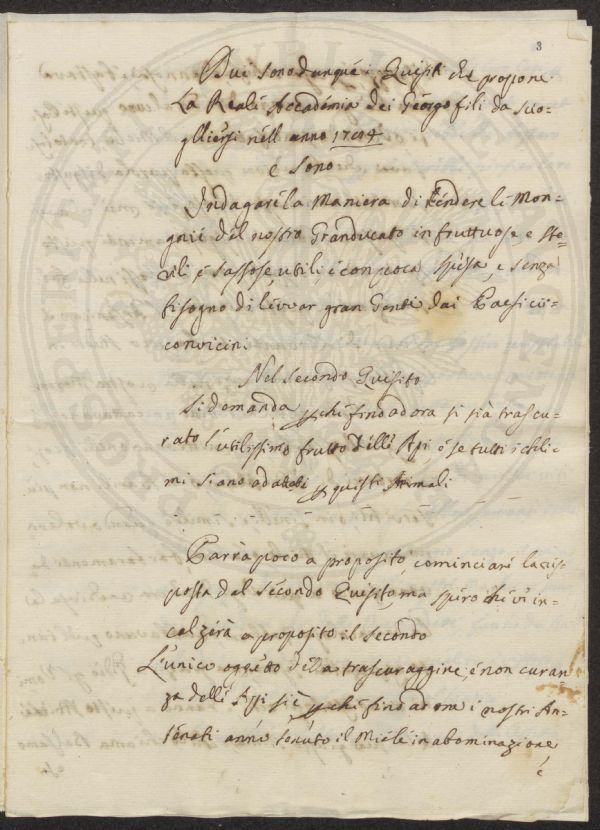 3
Due sono dunque i Quisiti che propone
La Reale Accademia dei Georgofili da scio-
gliersi nell anno 1794
e sono
Indagare la Maniera di rendere li Mon-
gnii del nostro Granducato infruttuose e ste-
rili, e sassose, utili, e con poca spesa, e senza
bisogno di levvar gran Genti dai Paesi cir-
convicini.
Nel secondo Quisito
Si domanda perche fino ad ora si sia trascu-
rato l'utilissimo frutto delle Api, e se tutti i chli-
mi siano adattabi per questi Animali
Parrà poco a proposito, cominciare la ris-
posta dal secondo Quisito, ma spero che vi in-
calzerà a proposito il secondo
L'unico oggetto della trascuraggine, e non curan-
za delle Api si è perche fino ad ora i nostri An-
tenati anno tenuto il Miele in abominazione
e